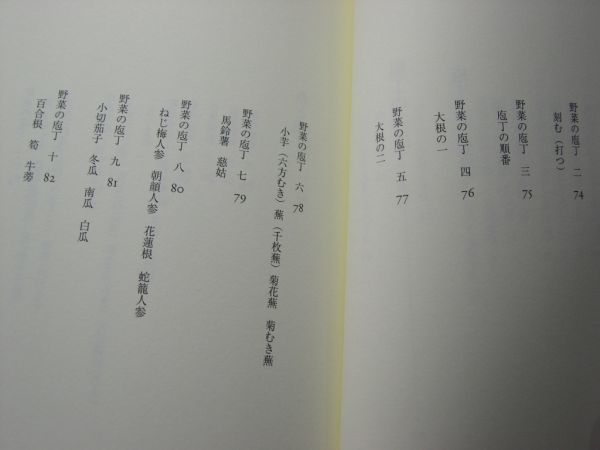 野菜の庖丁 二 74
刻む（打つ）
野菜の庖丁 三 75
庖丁の順番
野菜の庖丁 四 76
大根の一
野菜の庖丁 五 77
大根の二
野菜の庖丁 六 78
小芋（六方むき） 蕪（千枚蕪） 菊花蕪 菊むき蕪
野菜の庖丁 七 79
馬鈴薯 慈姑
野菜の庖丁 八 80
ねじ梅人参 朝顔人参 花蓮根 蛇籠人参
野菜の庖丁 九 81
小切茄子 冬瓜 南瓜 白瓜
野菜の庖丁 十 82
百合根 筍 牛蒡